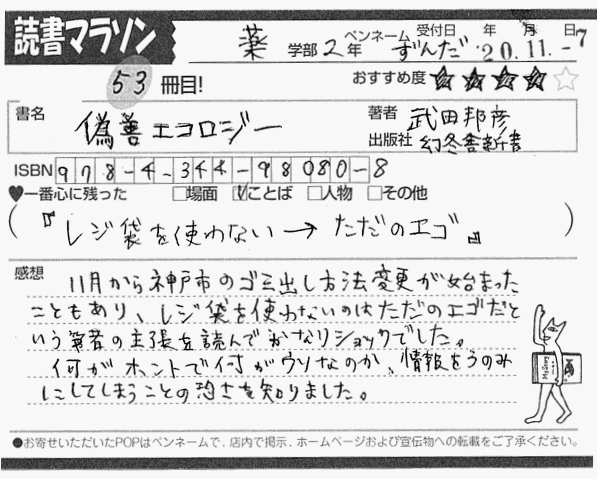 読書マラソン
薬 学部 2年 ペンネーム ずんだ 受付日 年 月 日 '20.11.-7
53 冊目! おすすめ度 ★★★★☆
書名 偽善エコロジー 著者 武田邦彦
出版社 幻冬舎新書
ISBN 978-4-344-98080-8
♥一番心に残った □場面 ☑ことば □人物 □その他
(『レジ袋を使わない→ただのエゴ』)
感想 11月から神戸市のゴミ出し方法変更が始まった
こともあり、レジ袋を使わないのはただのエゴだと
いう筆者の主張を読んでかなりショックでした。
何がホントで何がウソなのか、情報をうのみ
にしてしまうことの恐さを知りました。
●お寄せいただいたPOPはペンネームで、店内で掲示、ホームページおよび宣伝物への転載をご了承ください。